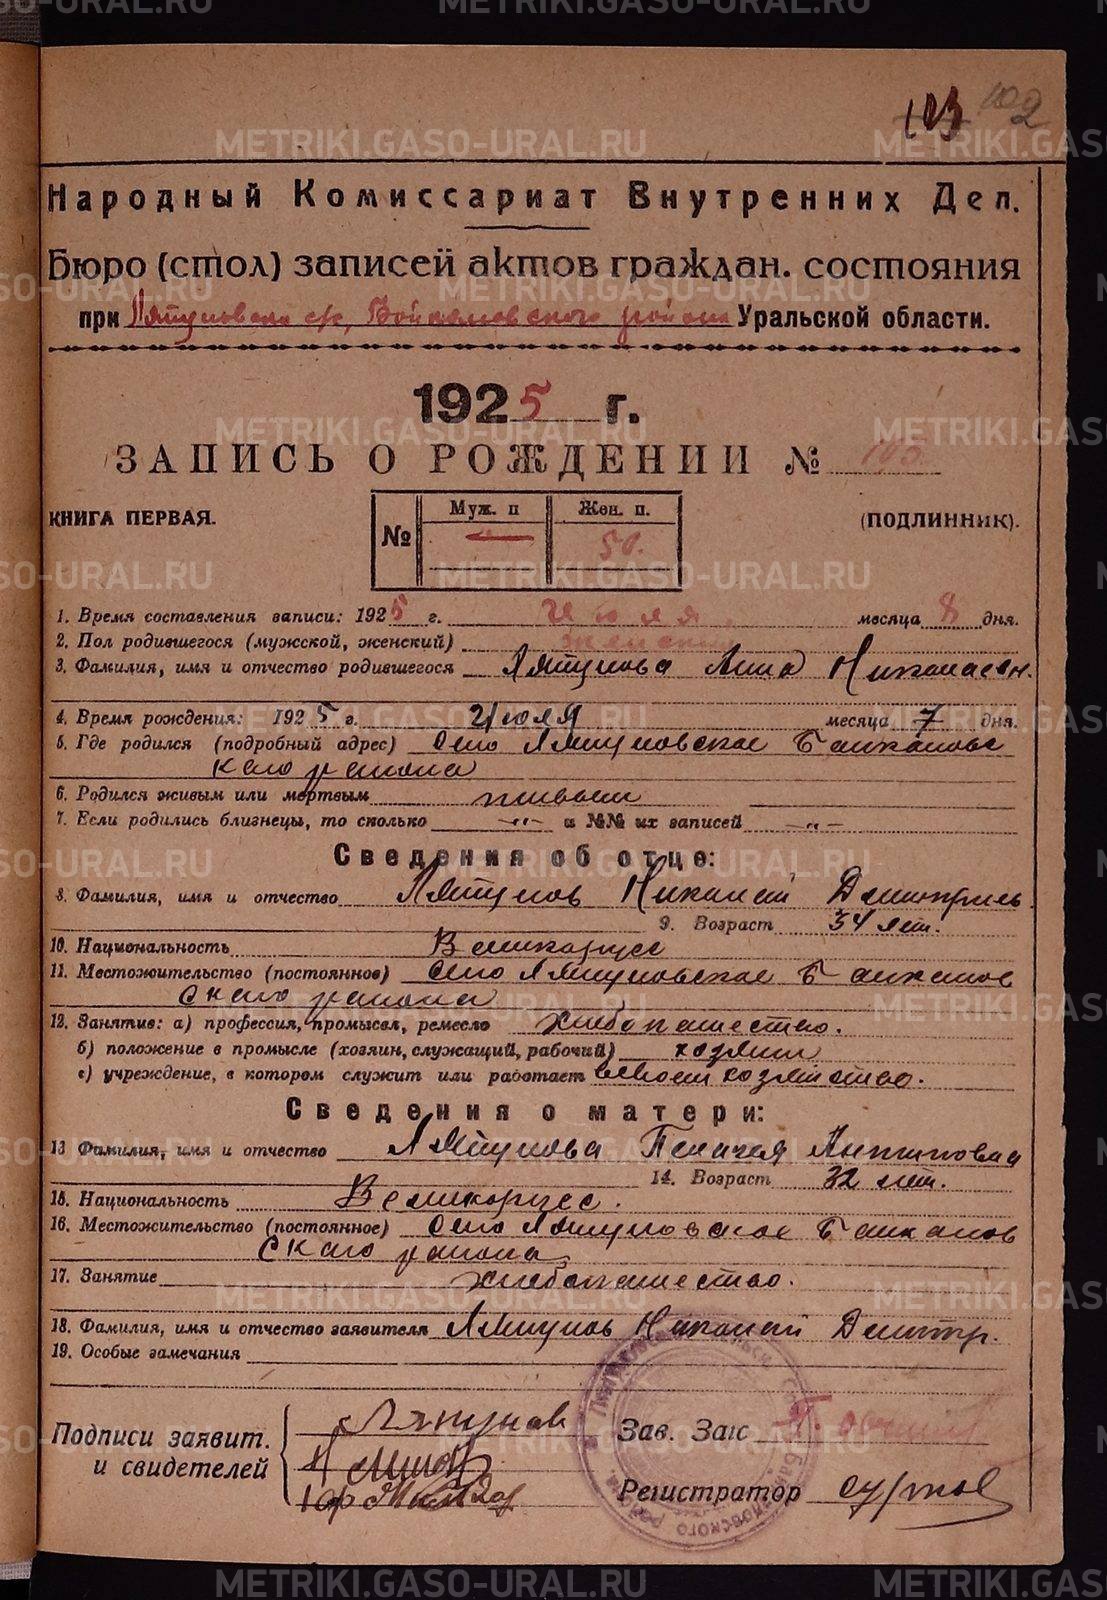 103 102
Народный Комиссариат Внутренних Дел.
Бюро (стол) записей актов граждан. состояния
при Ляпуновском с/с, Байкаловского района Уральской области.
1925 г.
ЗАПИСЬ О РОЖДЕНИИ № 105
КНИГА ПЕРВАЯ.
№ Муж. п Жен. п.
— 50.
(ПОДЛИННИК).
1. Время составления записи: 1925 г. Июля месяца 8 дня.
2. Пол родившегося (мужской, женский) женский
3. Фамилия, имя и отчество родившегося Ляпунова Анна Николаевн.
4. Время рождения: 1925 г. Июля месяца 7 дня.
5. Где родился (подробный адрес) Село Ляпуновское Байкаловс
каго района
6. Родился живым или мертвым живым
7. Если родились близнецы, то сколько -„- и №№ их записей -„-
Сведения об отце:
8. Фамилия, имя и отчество Ляпунов Николай Дмитриев.
9. Возраст 34 лет.
10. Национальность Великорусс
11. Местожительство (постоянное) Село Ляпуновское Байкалов
скаго района
12. Занятие: а) профессия, промысел, ремесло хлебопашество.
б) положение в промысле (хозяин, служащий, рабочий) хозяин
в) учреждение, в котором служит или работает в своем хозяйстве.
Сведения о матери:
13 Фамилия, имя и отчество Ляпунова Пелагея Антиповна
14. Возраст 32 лет.
15. Национальность Великорусс.
16. Местожительство (постоянное) Село Ляпуновское Байкалов
скаго района
17. Занятие хлебопашество.
18. Фамилия, имя и отчество заявителя Ляпунов Николай Дмитр.
19. Особые замечания
Подписи заявит.
и свидетелей
Ляпунов
Зав. Загс
Регистратор
METRIKI.GASO-URAL.RU